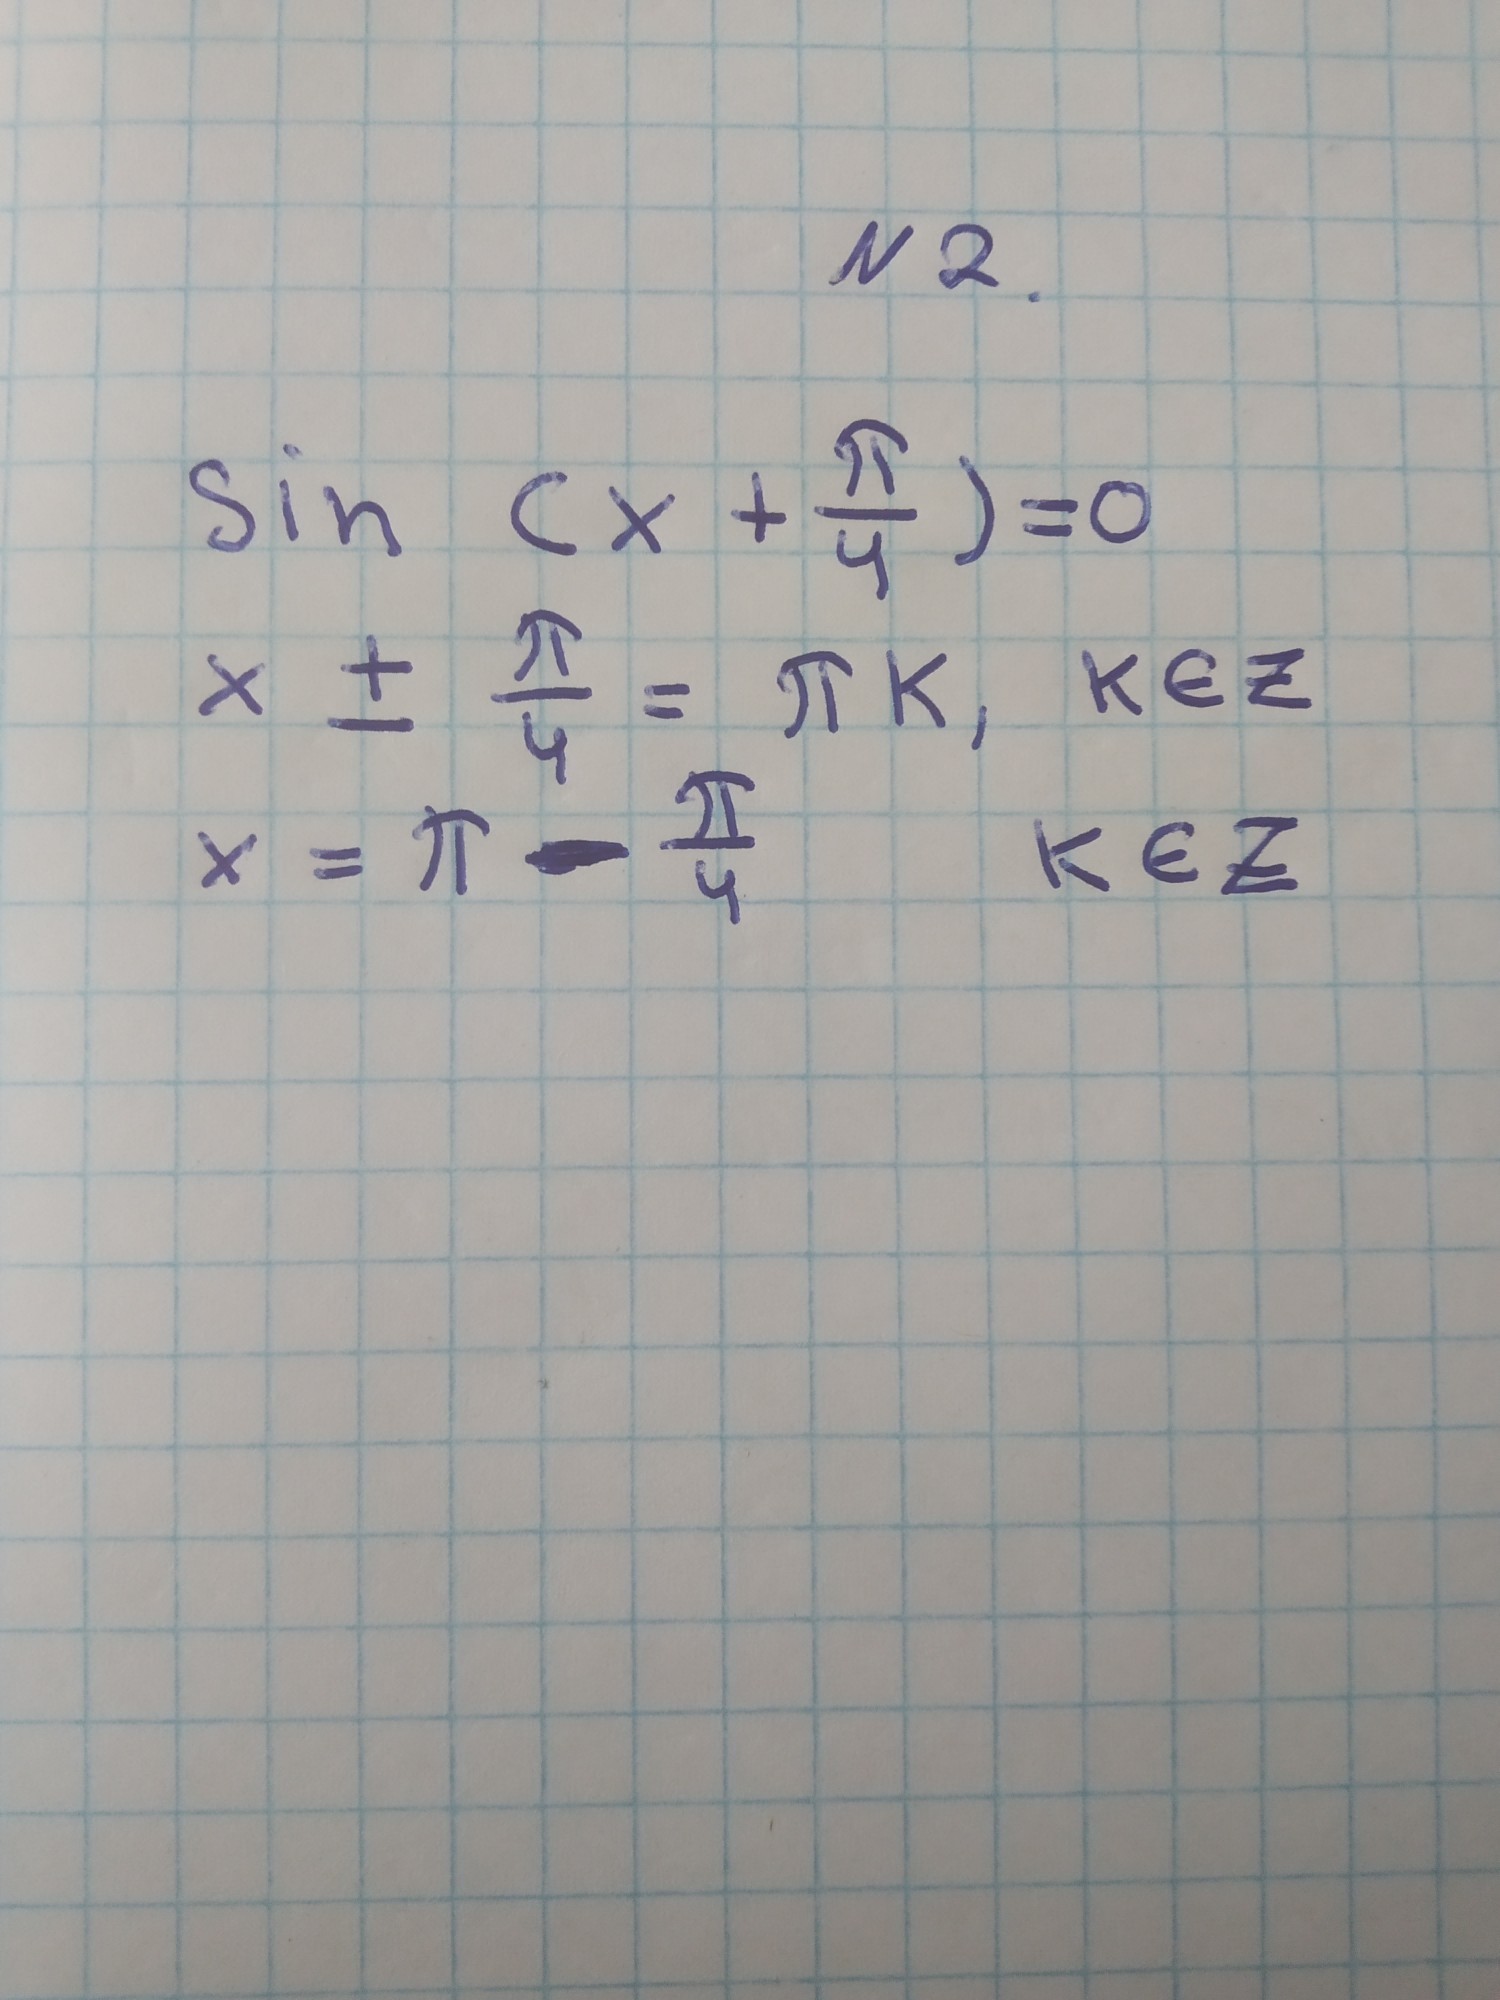 N 2.
Sin (x + π/4) = 0
x ± π/4 = πK, K ∈ Z
x = π - π/4 K ∈ Z